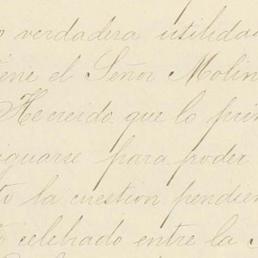 o verdadera utilidad
iene el Señor Molin
He creido que lo pri
iguarse para poder
to la cuestion pendien
to celebrado entre la